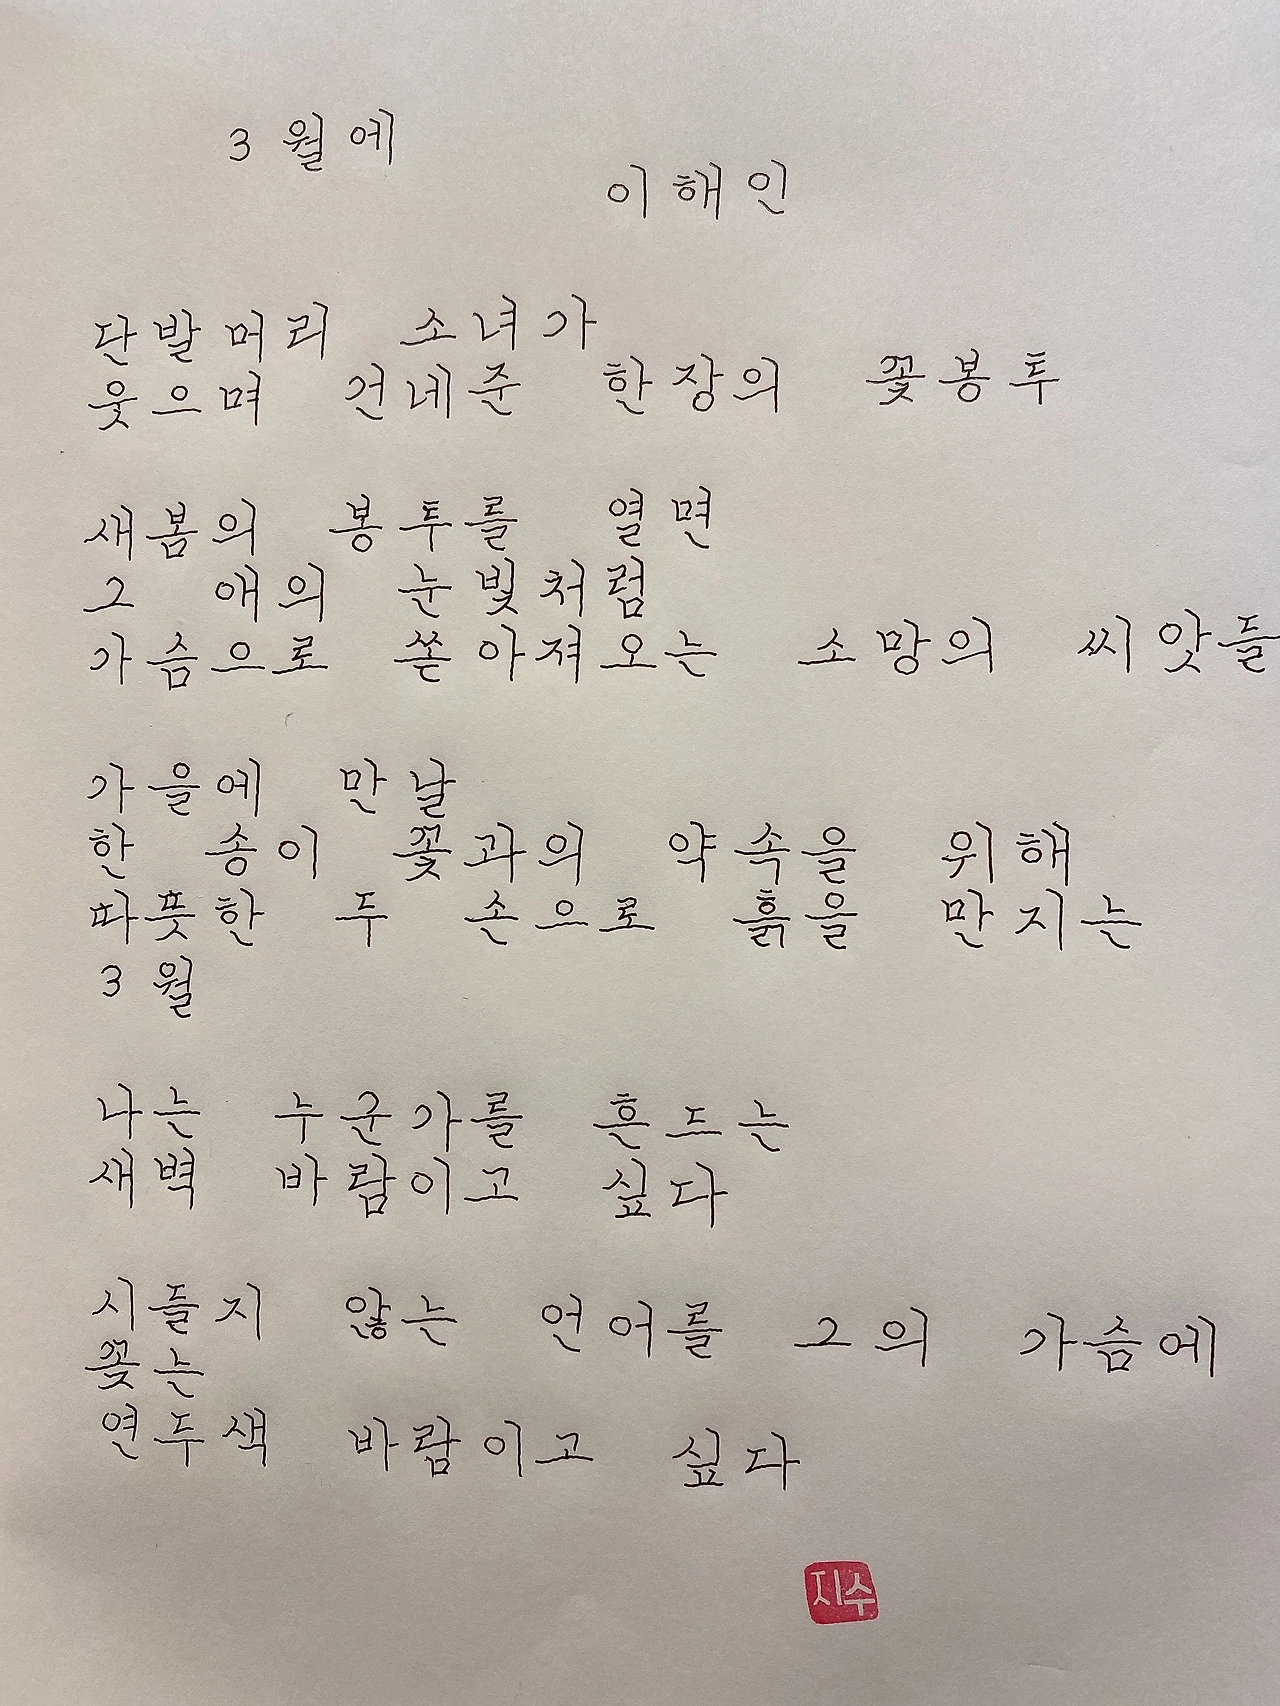 3월에
이해인
단발머리 소녀가
웃으며 건네준 한장의 꽃봉투
새봄의 봉투를 열면
그 애의 눈빛처럼
가슴으로 쏟아져오는 소망의 씨앗들
가을에 만날
한 송이 꽃과의 약속을 위해
따뜻한 두 손으로 흙을 만지는
3월
나는 누군가를 흔드는
새벽 바람이고 싶다
시들지 않는 언어를 그의 가슴에
꽂는
연두색 바람이고 싶다
지수